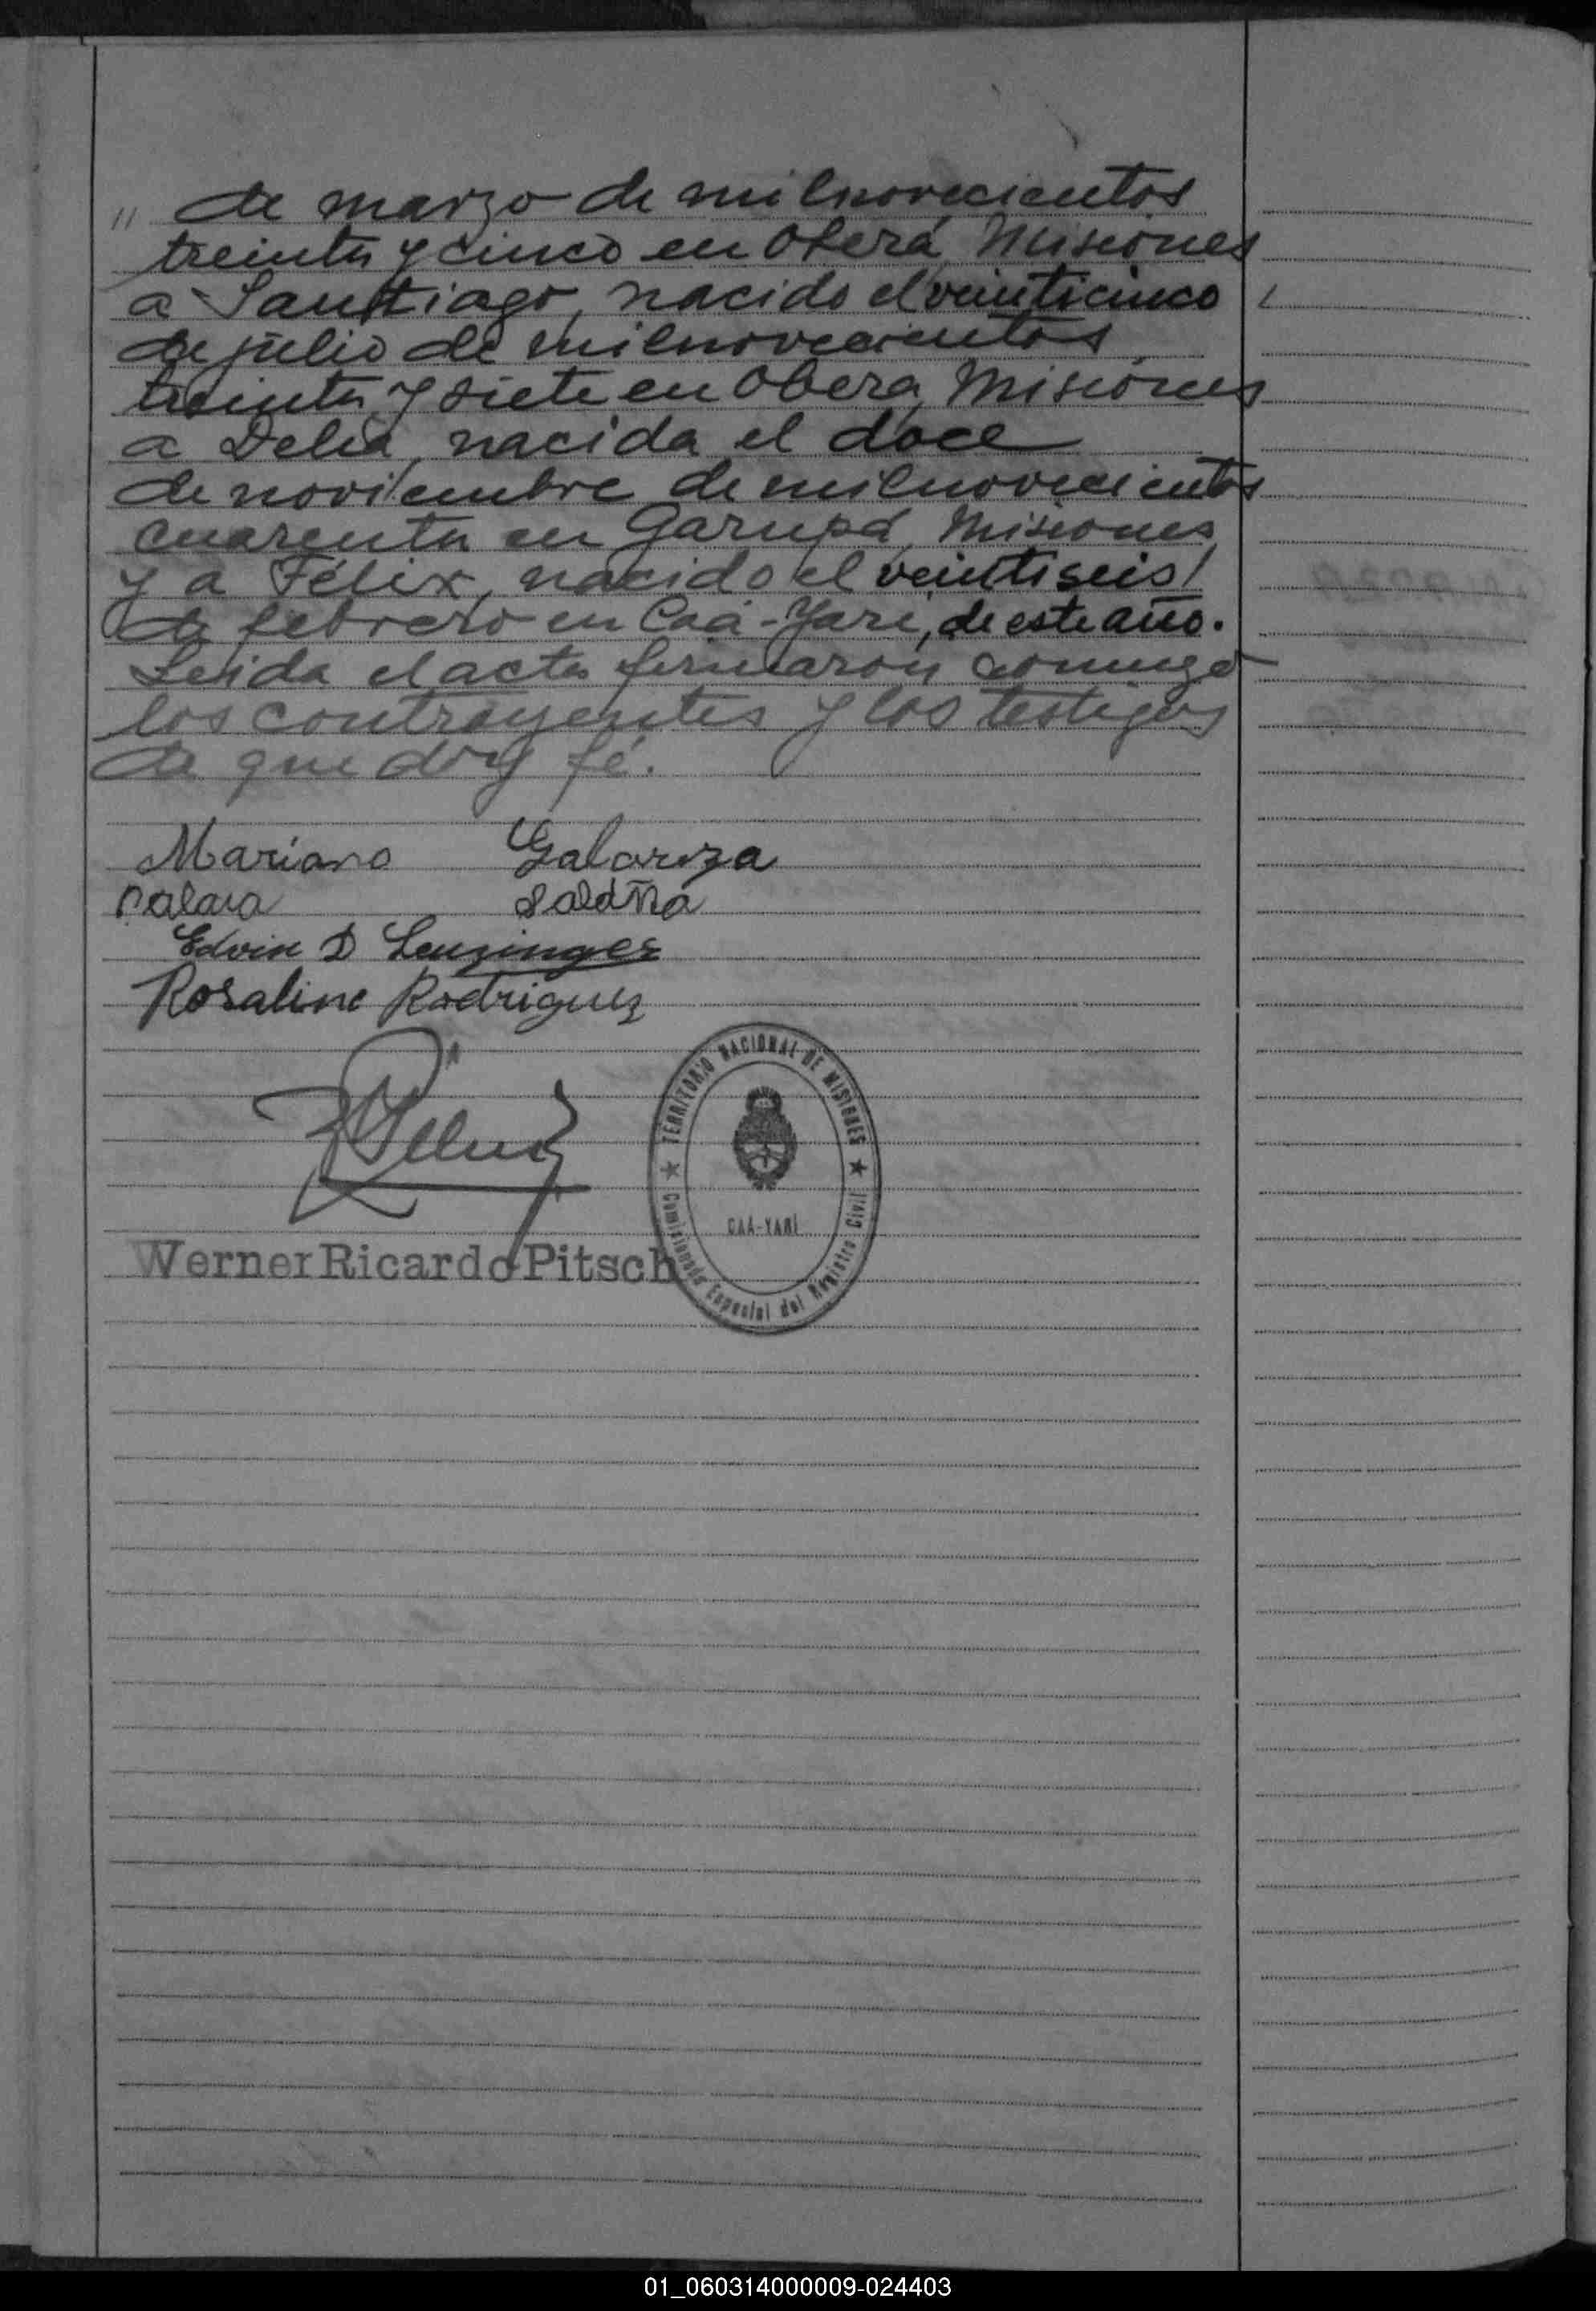 " de marzo de milnovecientos
treinta y cinco en Oberá Misiones
a Santiago, nacido el veinticinco
de julio de milnovecientos
treinta y siete en Obera, Misiones
a Delia, nacida el doce
de noviembre de milnovecientos
cuarenta en Garupá, Misiones
y a Félix, nacido el veintiseis/
de febrero en Caá-Yarí, de este año.
Leida el acta firmaron conmigo
los contrayentes y los testigos
de que doy fé.
Mariano Galarza
saldña
Edvin D Leuzinger
Rosaline Rodriguez
TERRITORIO NACIONAL DE MISIONES
CAÁ-YARÍ
Comisionado Especial del Registro Civil
Werner Ricardo Pitsch
01_060314000009-024403